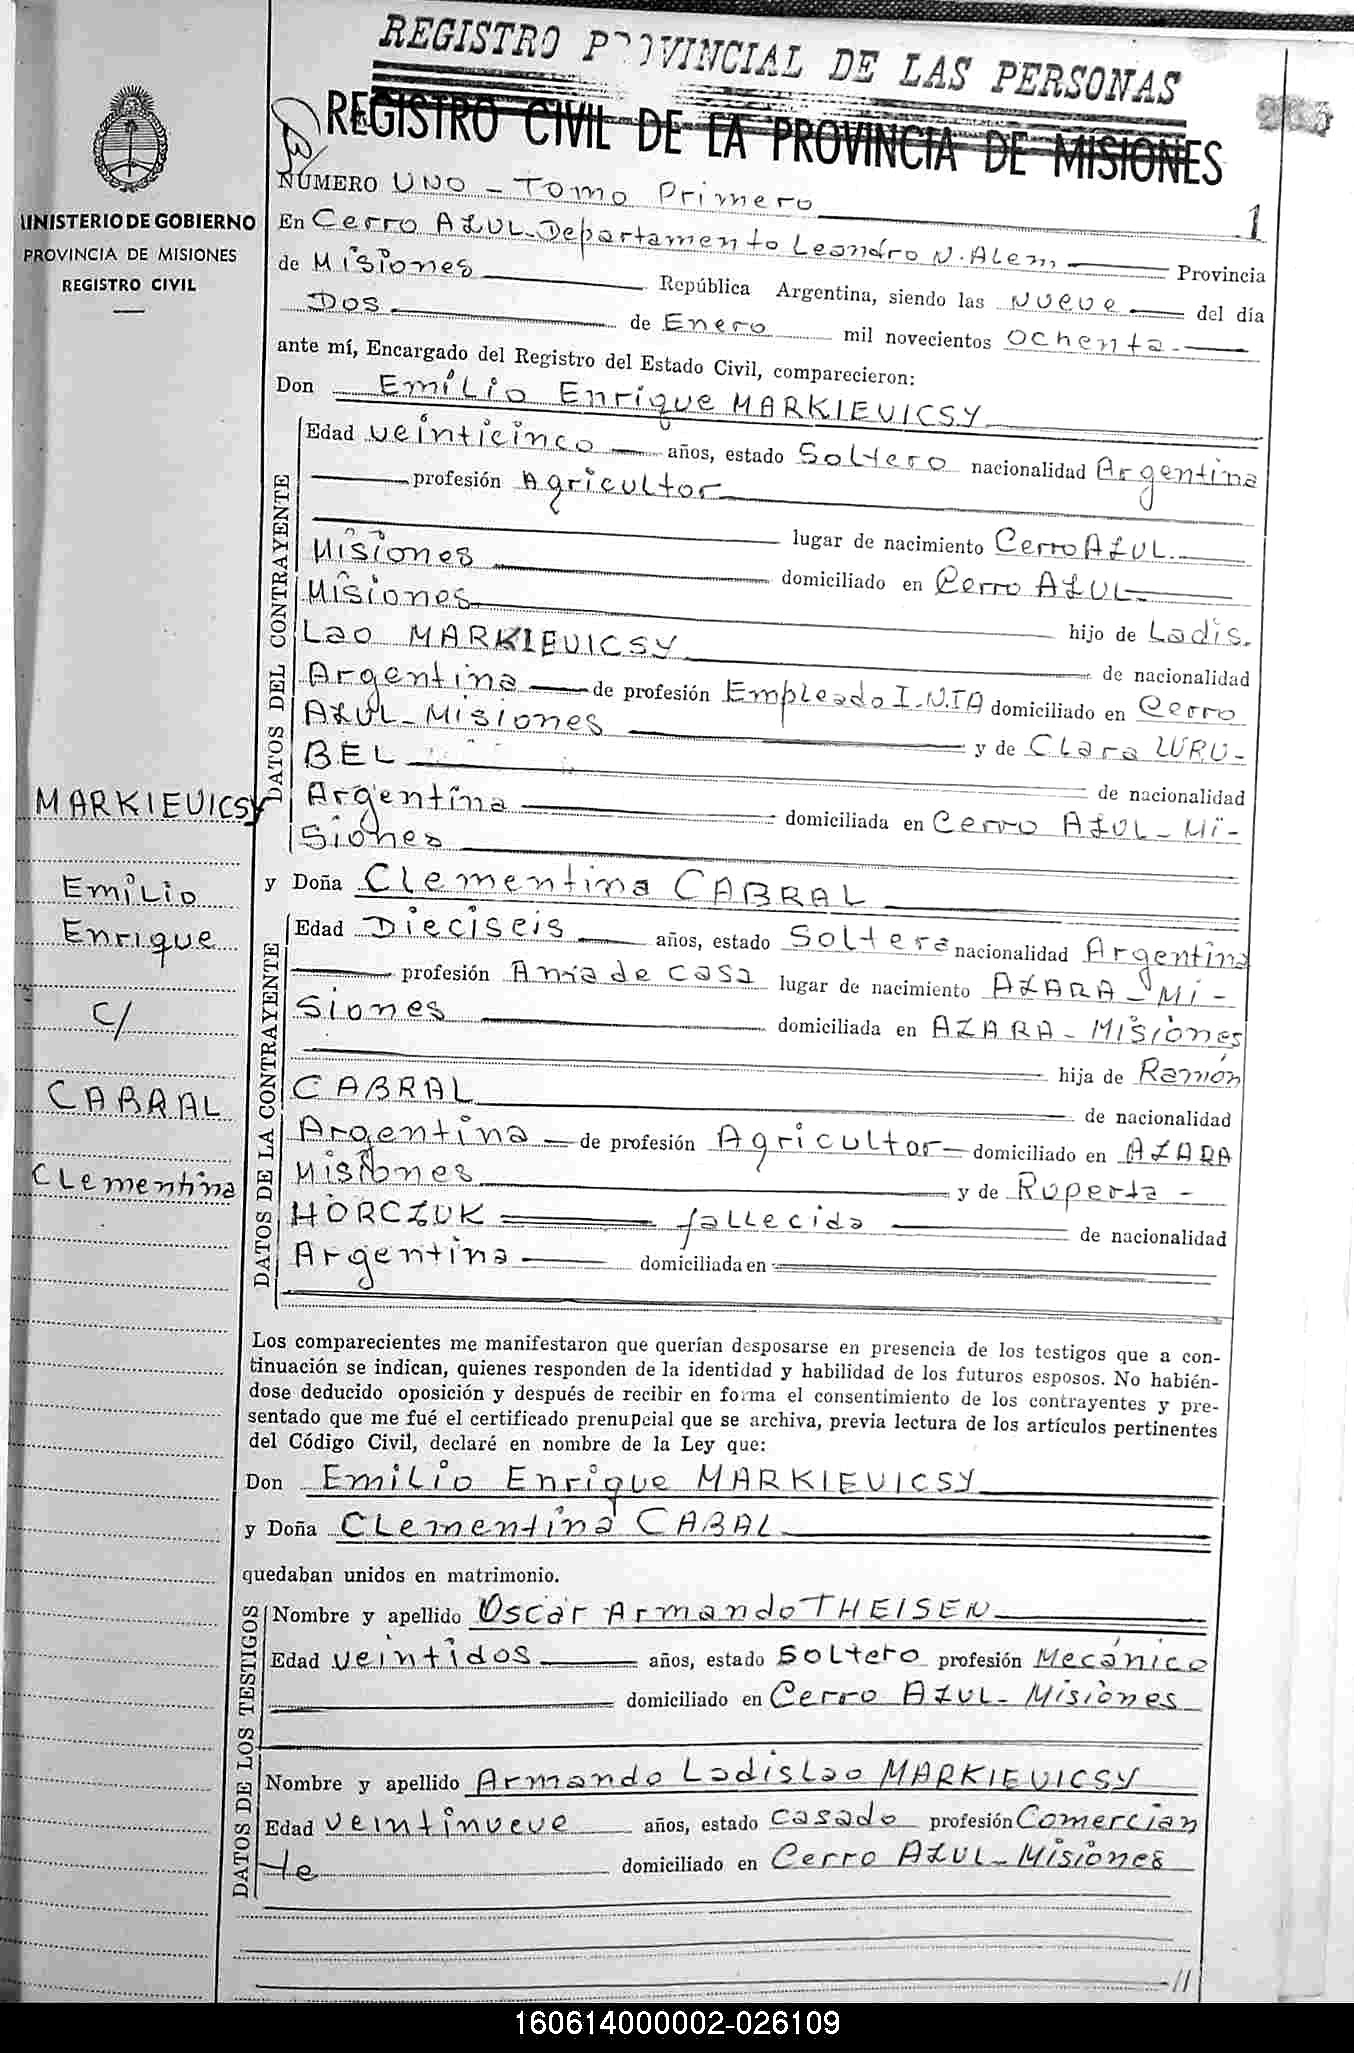 REGISTRO PROVINCIAL DE LAS PERSONAS
REGISTRO CIVIL DE LA PROVINCIA DE MISIONES
MINISTERIO DE GOBIERNO
PROVINCIA DE MISIONES
REGISTRO CIVIL
NUMERO UNO - Tomo Primero
1
En Cerro AZUL - Departamento Leandro N. Alem Provincia
de Misiones República Argentina, siendo las nueve del día
Dos de Enero mil novecientos ochenta
ante mí, Encargado del Registro del Estado Civil, comparecieron:
Don Emilio Enrique MARKIEVICSY
DATOS DEL CONTRAYENTE
Edad veinticinco años, estado Soltero nacionalidad Argentina
profesión Agricultor
lugar de nacimiento Cerro AZUL
Misiones domiciliado en Cerro AZUL
Misiones
hijo de Ladis.
Lao MARKIEVICSY
de nacionalidad
Argentina de profesión Empleado I.N.TA domiciliado en Cerro
AZUL - Misiones y de Clara WRU-
BEL
de nacionalidad
Argentina domiciliada en Cerro AZUL - Mi-
siones
y Doña Clementina CABRAL
DATOS DE LA CONTRAYENTE
Edad Dieciseis años, estado Soltera nacionalidad Argentina
profesión Ama de casa lugar de nacimiento AZARA - Mi-
siones domiciliada en AZARA - Misiones
hija de Ramón
CABRAL de nacionalidad
Argentina de profesión Agricultor domiciliado en AZARA
Misiones y de Ruperta -
HORCZUK fallecida de nacionalidad
Argentina domiciliada en
MARKIEVICSY
Emilio
Enrique
C/
CABRAL
Clementina
Los comparecientes me manifestaron que querían desposarse en presencia de los testigos que a con-
tinuación se indican, quienes responden de la identidad y habilidad de los futuros esposos. No habién-
dose deducido oposición y después de recibir en forma el consentimiento de los contrayentes y pre-
sentado que me fué el certificado prenupcial que se archiva, previa lectura de los artículos pertinentes
del Código Civil, declaré en nombre de la Ley que:
Don Emilio Enrique MARKIEVICSY
y Doña Clementina CABAL
quedaban unidos en matrimonio.
DATOS DE LOS TESTIGOS
Nombre y apellido Oscar Armando THEISEN
Edad veintidos años, estado soltero profesión Mecánico
domiciliado en Cerro AZUL - Misiones
Nombre y apellido Armando Ladislao MARKIEVICSY
Edad veintinueve años, estado casado profesión Comercian
te domiciliado en Cerro AZUL - Misiones
//
160614000002-026109